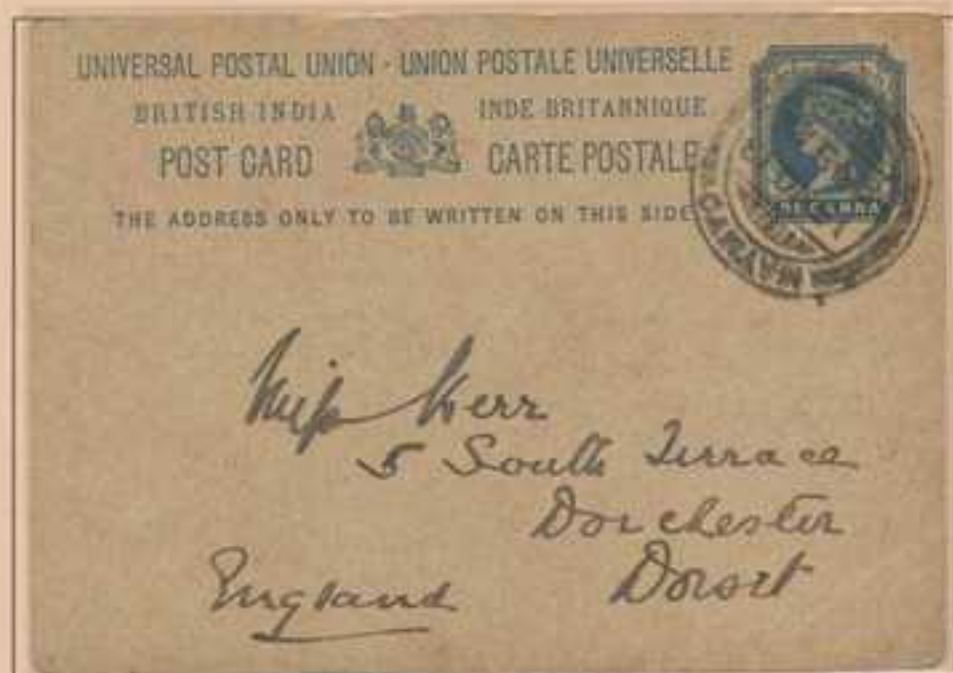 UNIVERSAL POSTAL UNION · UNION POSTALE UNIVERSELLE
BRITISH INDIA INDE BRITANNIQUE
POST CARD CARTE POSTALE
THE ADDRESS ONLY TO BE WRITTEN ON THIS SIDE
ANNA
Miss Kerr
5 South Terrace
Dorchester
Dorset
England